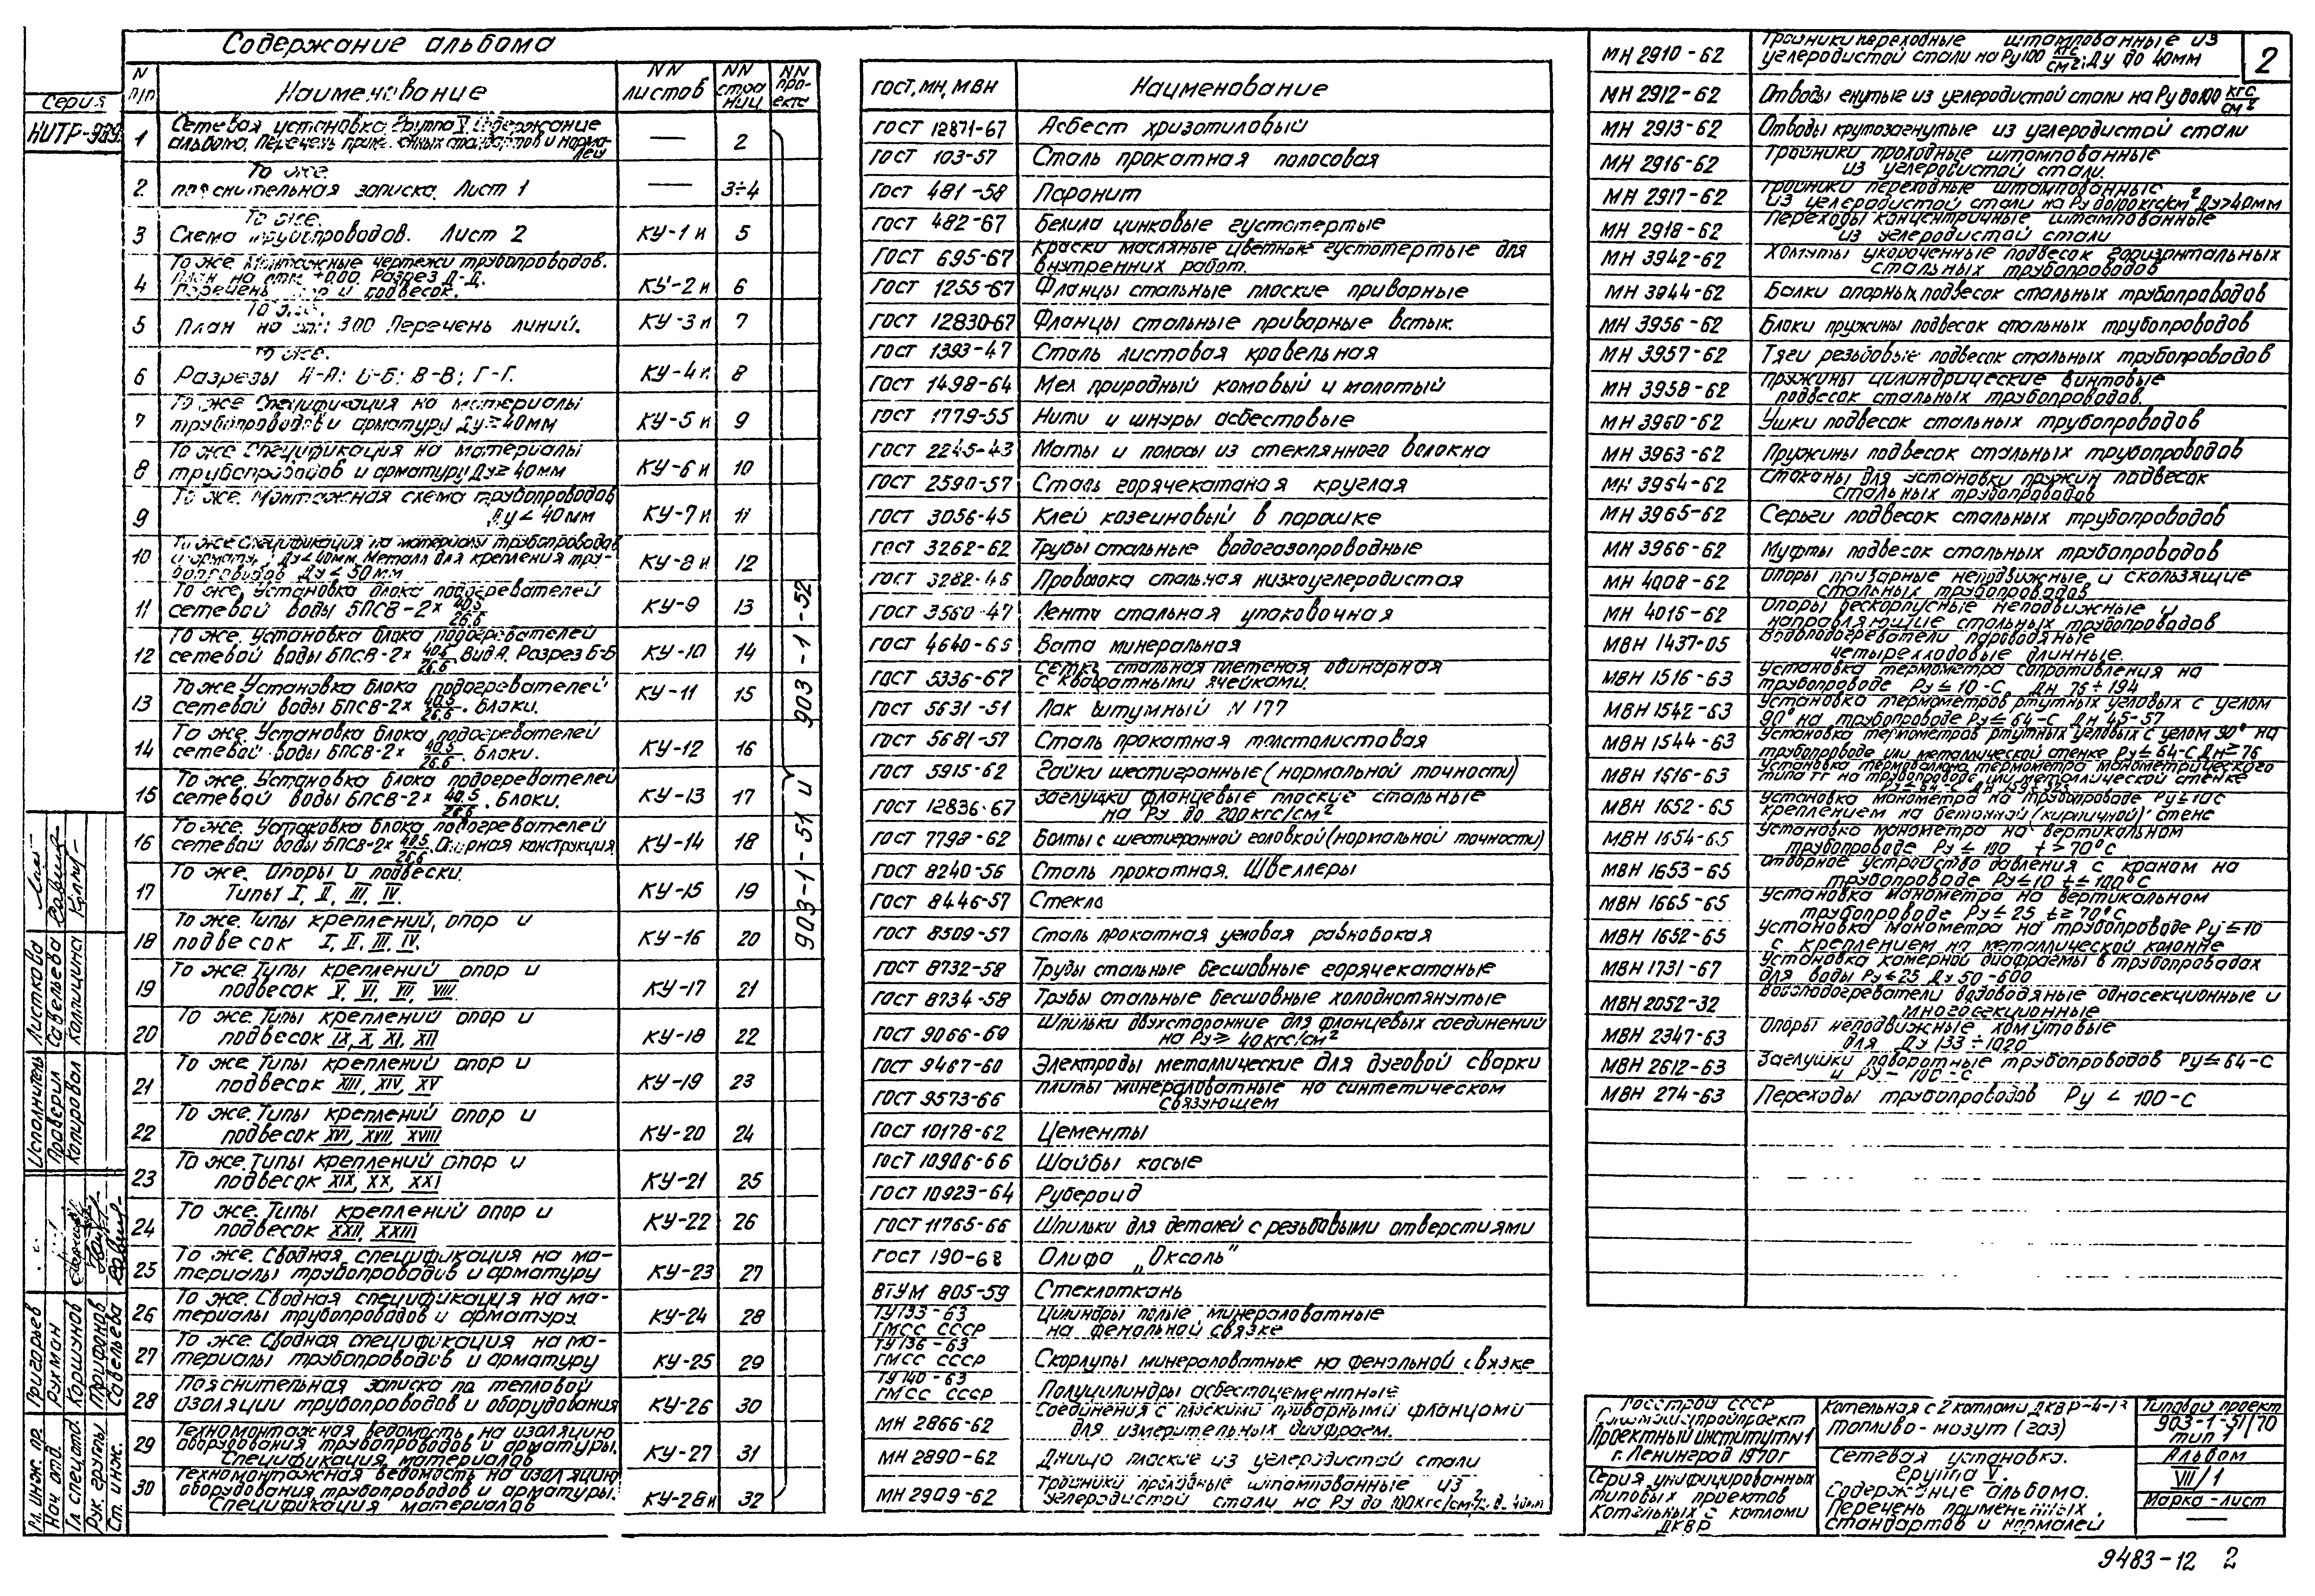 Содержание альбома
N п/п Наименование NN листов NN страниц NN проекта
1 Сетевая установка. Группа V. Содержание
альбома. Перечень применных стандартов и нормалей — 2
2 То же.
пояснительная записка. Лист 1 — 3÷4
3 То же.
Схема трубопроводов. Лист 2 КУ-1и 5
4 То же. Монтажные чертежи трубопроводов.
План на отм. Разрез Д-Д.
Перечень опор и подвесок. КУ-2и 6
5 То же.
План на отм Перечень линий. КУ-3и 7
6 То же.
Разрезы А-А; Б-Б; В-В; Г-Г. КУ-4и 8
7 То же Спецификация на материалы
трубопроводов и арматуру Ду ≥ 40мм КУ-5и 9
8 То же Спецификация на материалы
трубопроводов и арматуру Ду ≥ 40мм КУ-6и 10
9 То же. Монтажная схема трубопроводов
Ду < 40мм КУ-7и 11
10 То же Спецификация на материалы трубопроводов
и арматуры Ду < 40мм. Металл для крепления тру-
бопроводов Ду < 50мм КУ-8и 12
11 То же. Установка блока подогревателей
сетевой воды БПСВ-2× 40.5/26.6 КУ-9 13
12 То же. Установка блока подогревателей
сетевой воды БПСВ-2× 40.5/26.6 Вид А. Разрез Б-Б КУ-10 14
13 То же Установка блока подогревателей
сетевой воды БПСВ-2× 40.5/26.6. Блоки. КУ-11 15
14 То же Установка блока подогревателей
сетевой воды БПСВ-2× 40.5/26.6. Блоки. КУ-12 16
15 То же. Установка блока подогревателей
сетевой воды БПСВ-2× 40.5/26.6. Блоки. КУ-13 17
16 То же. Установка блока подогревателей
сетевой воды БПСВ-2× 40.5/26.6. Опорная конструкция КУ-14 18
17 То же. Опоры и подвески.
Типы I, II, III, IV. КУ-15 19
18 То же. Типы креплений, опор и
подвесок I, II, III, IV. КУ-16 20
19 То же. Типы креплений опор и
подвесок V, VI, VII, VIII. КУ-17 21
20 То же. Типы креплений опор и
подвесок IX, X, XI, XII КУ-18 22
21 То же Типы креплений опор и
подвесок XIII, XIV, XV КУ-19 23
22 То же. Типы креплений опор и
подвесок XVI, XVII, XVIII КУ-20 24
23 То же. Типы креплений опор и
подвесок XIX, XX, XXI КУ-21 25
24 То же. Типы креплений опор и
подвесок XXII, XXIII КУ-22 26
25 То же. Сводная спецификация на ма-
териалы трубопроводов и арматуру КУ-23 27
26 То же. Сводная спецификация на ма-
териалы трубопроводов и арматуру КУ-24 28
27 То же. Сводная спецификация на ма-
териалы трубопроводов и арматуру КУ-25 29
28 Пояснительная записка по тепловой
изоляции трубопроводов и оборудования КУ-26 30
29 Техномонтажная ведомость на изоляцию
оборудования трубопроводов и арматуры.
Спецификация материалов КУ-27 31
30 Техномонтажная ведомость на изоляцию
оборудования трубопроводов и арматуры.
Спецификация материалов КУ-28и 32
903-1-51 и 903-1-52
ГОСТ, МН, МВН Наименование
ГОСТ 12871-67 Асбест хризотиловый
ГОСТ 103-57 Сталь прокатная полосовая
ГОСТ 481-58 Паронит
ГОСТ 482-67 Белила цинковые густотертые
ГОСТ 695-67 Краски масляные цветные густотертые для
внутренних работ.
ГОСТ 1255-67 Фланцы стальные плоские приварные
ГОСТ 12830-67 Фланцы стальные приварные встык.
ГОСТ 1393-47 Сталь листовая кровельная
ГОСТ 1498-64 Мел природный комовый и молотый
ГОСТ 1779-55 Нити и шнуры асбестовые
ГОСТ 2245-43 Маты и полосы из стеклянного волокна
ГОСТ 2590-57 Сталь горячекатаная круглая
ГОСТ 3056-45 Клей козеиновый в порошке
ГОСТ 3262-62 Трубы стальные водогазопроводные
ГОСТ 3282-46 Проволока стальная низкоуглеродистая
ГОСТ 3560-47 Лента стальная упаковочная
ГОСТ 4640-66 Вата минеральная
ГОСТ 5336-67 Сетка стальная плетеная одинарная
с квадратными ячейками.
ГОСТ 5631-51 Лак N 177
ГОСТ 5681-57 Сталь прокатная толстолистовая
ГОСТ 5915-62 Гайки шестигранные (нормальной точности)
ГОСТ 12836-67 Заглушки фланцевые плоские стальные
на Ру до 200 кгс/см²
ГОСТ 7798-62 Болты с шестигранной головкой (нормальной точности)
ГОСТ 8240-56 Сталь прокатная. Швеллеры
ГОСТ 8446-57 Стекло
ГОСТ 8509-57 Сталь прокатная угловая равнобокая
ГОСТ 8732-58 Трубы стальные бесшовные горячекатаные
ГОСТ 8734-58 Трубы стальные бесшовные холоднотянутые
ГОСТ 9066-69 Шпильки двухсторонние для фланцевых соединений
на Ру ≥ 40 кгс/см²
ГОСТ 9467-60 Электроды металлические для дуговой сварки
ГОСТ 9573-66 Плиты минераловатные на синтетическом
связующем
ГОСТ 10178-62 Цементы
ГОСТ 10906-66 Шайбы косые
ГОСТ 10923-64 Рубероид
ГОСТ 11765-66 Шпильки для деталей с резьбовыми отверстиями
ГОСТ 190-68 Олифа „Оксоль"
ВТУМ 805-59 Стеклоткань
ТУ 133-63 ГМСС СССР Цилиндры полые минераловатные
на фенольной связке
ТУ 136-63 ГМСС СССР Скорлупы минераловатные на фенольной связке
ТУ 140-63 ГМСС СССР Полуцилиндры асбестоцементные
МН 2866-62 Соединения с плоскими приварными фланцами
для измерительных диафрагм.
МН 2890-62 Днища плоские из углеродистой стали
МН 2909-62 Тройники проходные штампованные из
углеродистой стали на Ру до 100кгс/см²
МН 2910-62 Тройники переходные штампованные из
углеродистой стали на Ру 100 кгс/см²; Ду до 40мм
2
МН 2912-62 Отводы гнутые из углеродистой стали на Ру до 100 кгс/см²
МН 2913-62 Отводы крутозагнутые из углеродистой стали
МН 2916-62 Тройники проходные штампованные
из углеродистой стали.
МН 2917-62 Тройники переходные штампованные
из углеродистой стали на Ру до 100кгс/см² Ду>40мм
МН 2918-62 Переходы концентричные штампованные
из углеродистой стали
МН 3942-62 Хомуты укороченные подвесок горизонтальных
стальных трубопроводов
МН 3944-62 Балки опорных подвесок стальных трубопроводов
МН 3956-62 Блоки пружины подвесок стальных трубопроводов
МН 3957-62 Тяги резьбовые подвесок стальных трубопроводов
МН 3958-62 Пружины цилиндрические винтовые
подвесок стальных трубопроводов.
МН 3960-62 Ушки подвесок стальных трубопроводов
МН 3963-62 Пружины подвесок стальных трубопроводов
МН 3964-62 Стаканы для установки пружин подвесок
стальных трубопроводов
МН 3965-62 Серьги подвесок стальных трубопроводов
МН 3966-62 Муфты подвесок стальных трубопроводов
МН 4008-62 Опоры приварные неподвижные и скользящие
стальных трубопроводов
МН 4016-62 Опоры бескорпусные неподвижные и
направляющие стальных трубопроводов
МВН 1437-05 Водоподогреватели пароводяные
четырехходовые длинные.
МВН 1516-63 Установка термометра сопротивления на
трубопроводе Ру ≤ 10-С Дн 76÷194
МВН 1542-63 Установка термометров ртутных угловых с углом
90° на трубопроводе Ру ≤ 64-С Дн 45-57
МВН 1544-63 Установка термометров ртутных угловых с углом 90° на
трубопроводе или металлической стенке Ру ≤ 64-С Дн ≥ 76
МВН 1516-63 Установка термобалона термометра манометрического
типа ТГ на трубопроводе или металлической стенке
Ру ≤ 64-С
МВН 1652-65 Установка манометра на трубопроводе Ру ≤ 10с
креплением на бетонной (кирпичной) стене
МВН 1654-65 Установка манометра на вертикальном
трубопроводе Ру ≤ 100 t > 70°С
МВН 1653-65 Отборное устройство давления с краном на
трубопроводе Ру ≤ 10 t ≤ 100°С
МВН 1665-65 Установка манометра на вертикальном
трубопроводе Ру ≤ 25 t ≥ 70°С
МВН 1652-65 Установка манометра на трубопроводе Ру ≤ 10
с креплением на металлической колонне
МВН 1731-67 Установка камерной диафрагмы в трубопроводах
для воды Ру ≤ 25 Ду 50-600
МВН 2052-32 Водоподогреватели водоводяные односекционные и
многосекционные
МВН 2347-63 Опоры неподвижные хомутовые
для Ду 133÷1020
МВН 2612-63 Заглушки поворотные трубопроводов Ру ≤ 64-С
и Ру - 100-С
МВН 274-63 Переходы трубопроводов Ру < 100-С
Госстрой СССР
Проектный институт N1
г. Ленинград 1970г
Серия унифицированных
типовых проектов
Котельных с котлами
ДКВР
Котельная с 2 котлами ДКВР-4-13
топливо-мазут (газ)
Сетевая установка.
Группа V.
Содержание альбома.
Перечень применных
стандартов и нормалей
Типовой проект
903-1-51/70
тип 1
Альбом
VIII/1
Марка-лист
—
9483-12 2
Серия
НИТР-939
Исполнитель Листкова
Проверил Савельева
Копировал Калицина
Гл. инж. пр. Григорьев
Нач. отд. Рухман
Гл. спец.отд. Коршунов
Рук. группы Трифонов
Ст. инж. Савельева